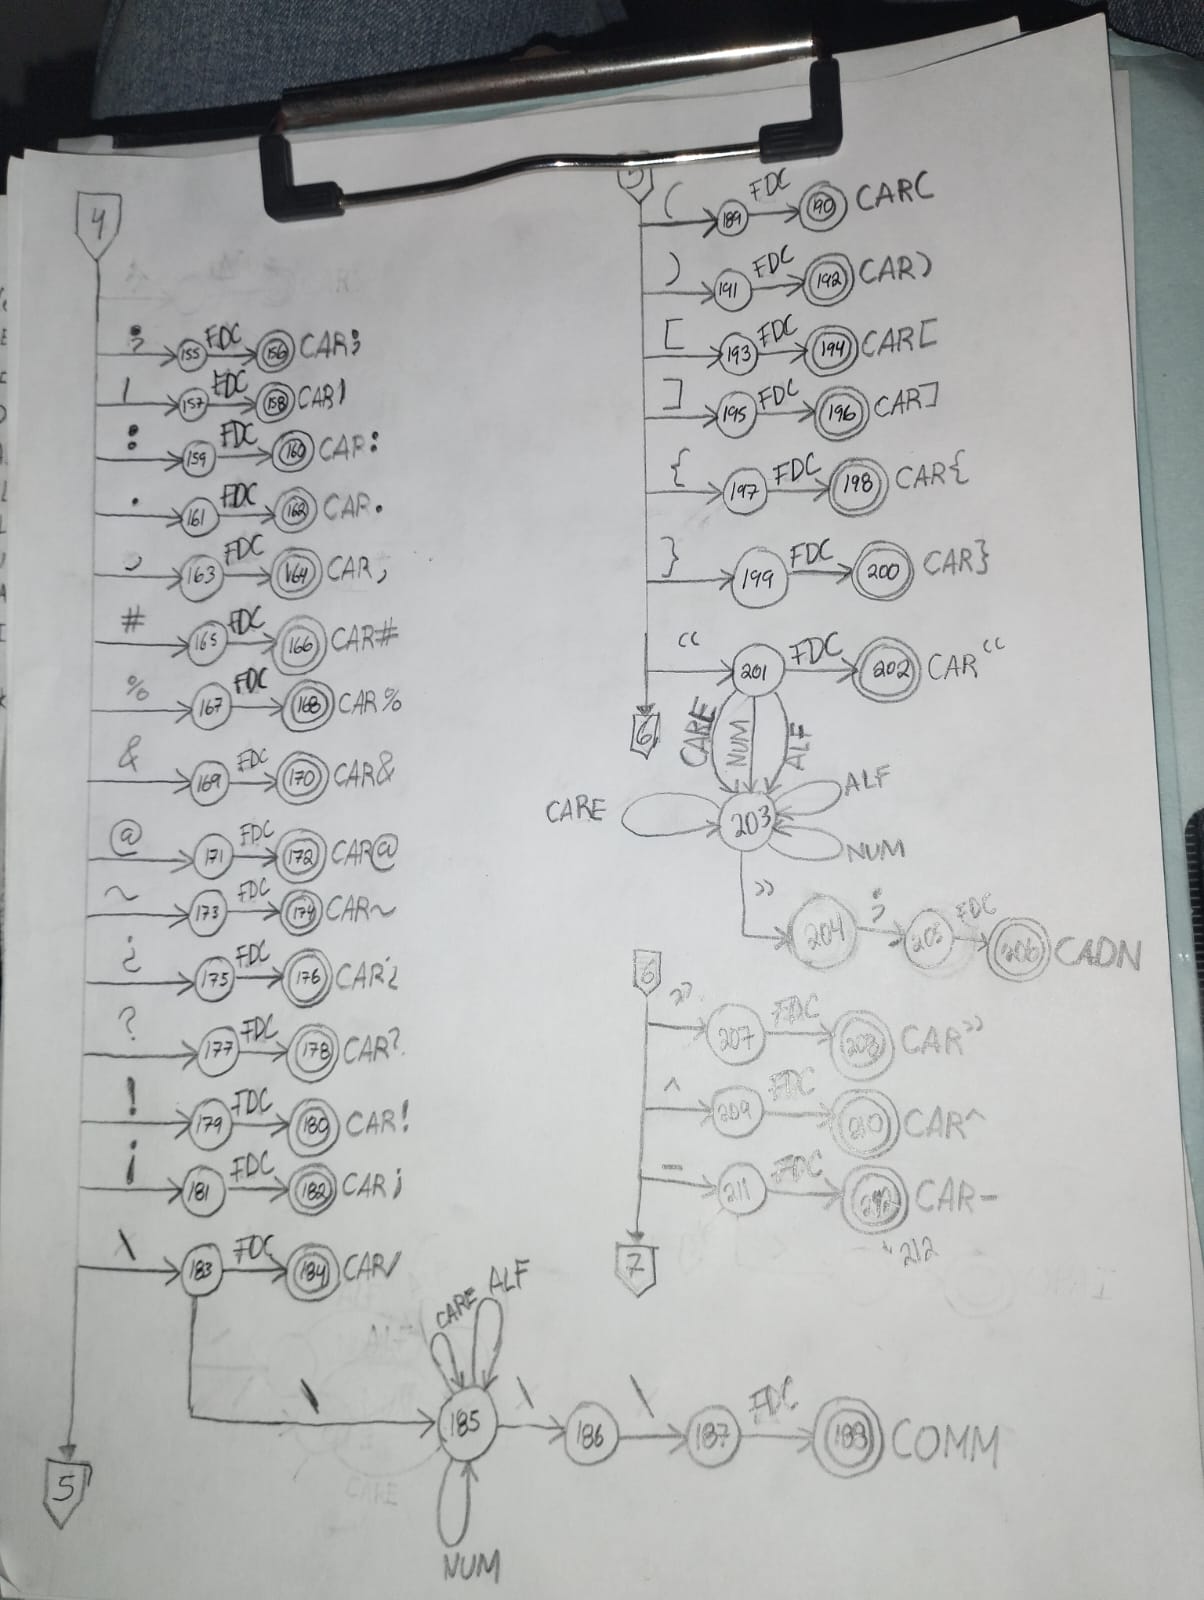 4
; 155 FDC 156 CAR;
| 157 FDC 158 CAR|
: 159 FDC 160 CAR:
. 161 FDC 162 CAR.
, 163 FDC 164 CAR,
# 165 FDC 166 CAR#
% 167 FDC 168 CAR%
& 169 FDC 170 CAR&
@ 171 FDC 172 CAR@
~ 173 FDC 174 CAR~
¿ 175 FDC 176 CAR¿
? 177 FDC 178 CAR?
! 179 FDC 180 CAR!
¡ 181 FDC 182 CAR¡
\ 183 FDC 184 CAR/
CARE ALF
\ 185 \ 186 \ 187 FDC 188 COMM
NUM
5
5
( 189 FDC 190 CAR(
) 191 FDC 192 CAR)
[ 193 FDC 194 CAR[
] 195 FDC 196 CAR]
{ 197 FDC 198 CAR{
} 199 FDC 200 CAR}
“ 201 FDC 202 CAR“
6
CARE NUM ALF
CARE 203 ALF
NUM
” 204 ; 205 FDC 206 CADN
6
” 207 FDC 208 CAR”
^ 209 FDC 210 CAR^
- 211 FDC 212 CAR-
212
7